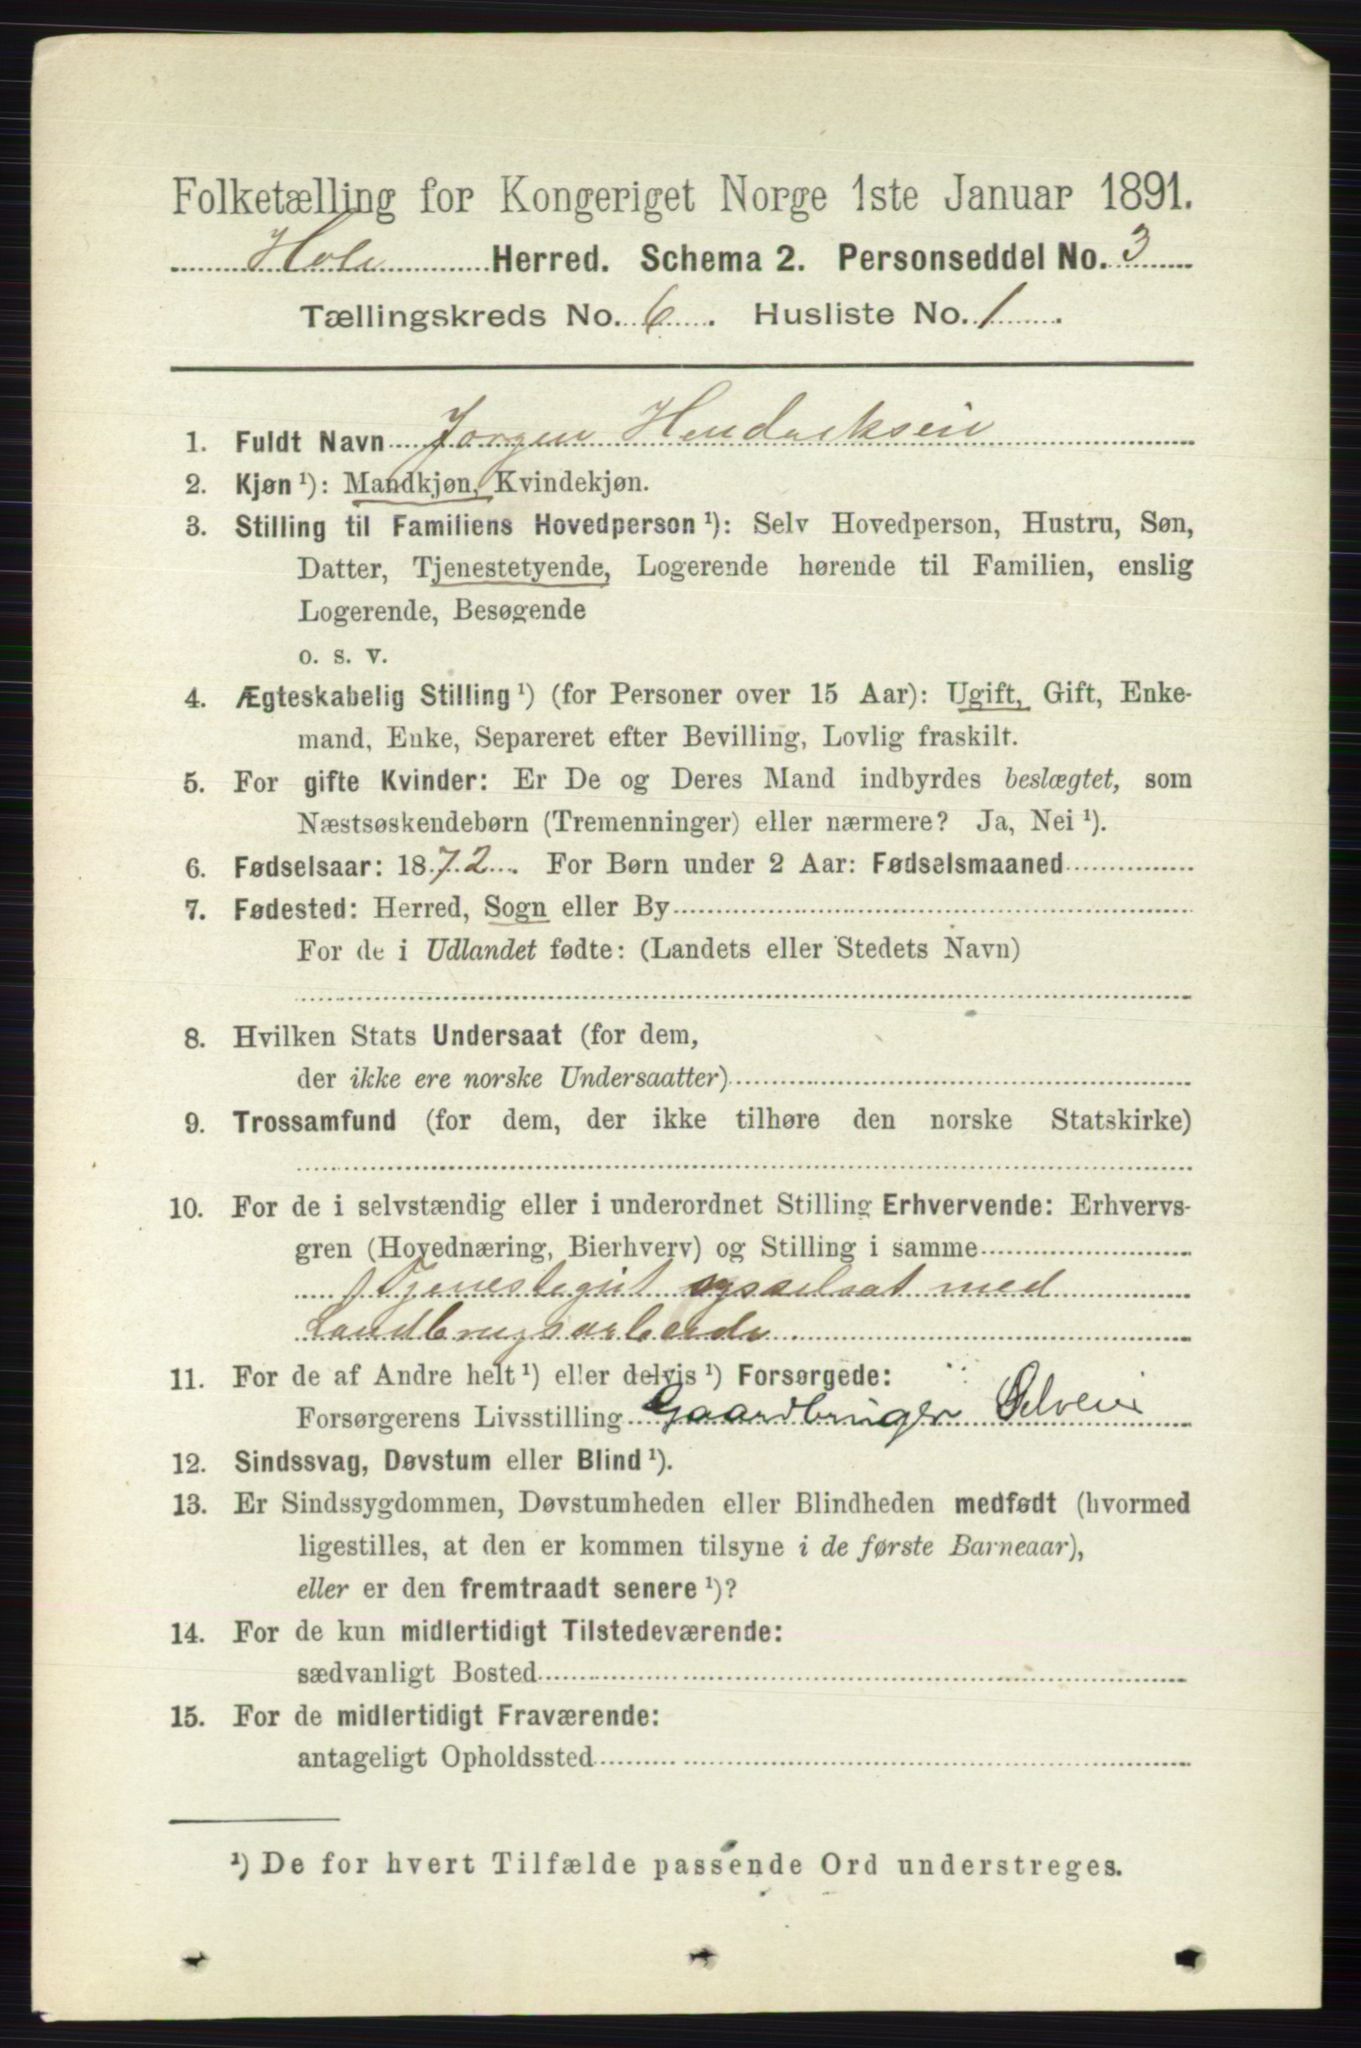 Folketælling for Kongeriget Norge 1ste Januar 1891.
Hole Herred. Schema 2. Personseddel No. 3
Tællingskreds No. 6. Husliste No. 1.
1. Fuldt Navn Jørgen Hendriksen
2. Kjøn ¹): Mandkjøn, Kvindekjøn.
3. Stilling til Familiens Hovedperson ¹): Selv Hovedperson, Hustru, Søn,
Datter, Tjenestetyende, Logerende hørende til Familien, enslig
Logerende, Besøgende
o. s. v.
4. Ægteskabelig Stilling ¹) (for Personer over 15 Aar): Ugift, Gift, Enke-
mand, Enke, Separeret efter Bevilling, Lovlig fraskilt.
5. For gifte Kvinder: Er De og Deres Mand indbyrdes beslægtet, som
Næstsøskendebørn (Tremenninger) eller nærmere? Ja, Nei ¹).
6. Fødselsaar: 1872. For Børn under 2 Aar: Fødselsmaaned
7. Fødested: Herred, Sogn eller By
For de i Udlandet fødte: (Landets eller Stedets Navn)
8. Hvilken Stats Undersaat (for dem,
der ikke ere norske Undersaatter)
9. Trossamfund (for dem, der ikke tilhøre den norske Statskirke)
10. For de i selvstændig eller i underordnet Stilling Erhvervende: Erhvervs-
gren (Hovednæring, Bierhverv) og Stilling i samme
Tjenestegut sysselsat med
Landbrugsarbeide
11. For de af Andre helt ¹) eller delvis ¹) Forsørgede:
Forsørgerens Livsstilling Gaardbruger
12. Sindssvag, Døvstum eller Blind ¹).
13. Er Sindssygdommen, Døvstumheden eller Blindheden medfødt (hvormed
ligestilles, at den er kommen tilsyne i de første Barneaar),
eller er den fremtraadt senere ¹)?
14. For de kun midlertidigt Tilstedeværende:
sædvanligt Bosted
15. For de midlertidigt Fraværende:
antageligt Opholdssted
¹) De for hvert Tilfælde passende Ord understreges.